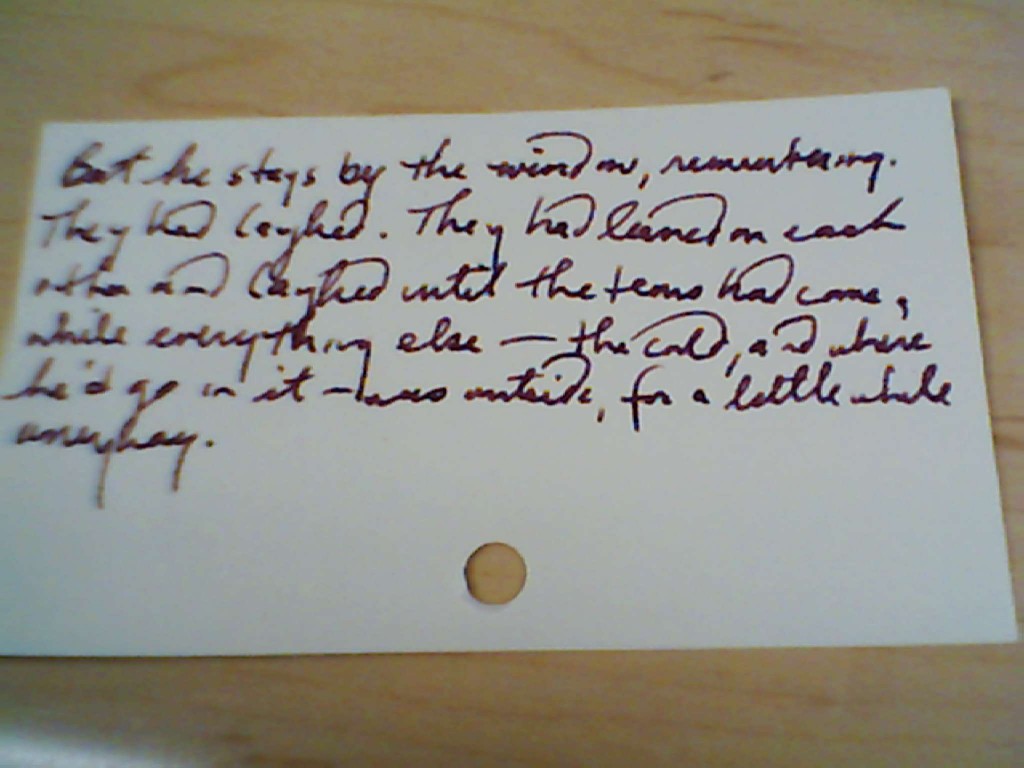 But he stays by the window, remembering.
They had laughed. They had leaned on each
other and laughed until the tears had come,
while everything else — the cold, and where
he'd go in it — was outside, for a little while
anyway.